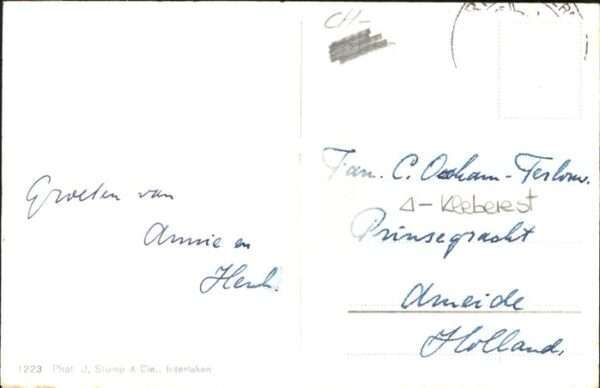 CH-
Groeten van
Annie en
Henk.
Fam. C. Ockam-Terlouw.
△-Kleberest
Prinsegracht
Ameide
Holland.
1223 Phot. J. Stump & Cie., Interlaken